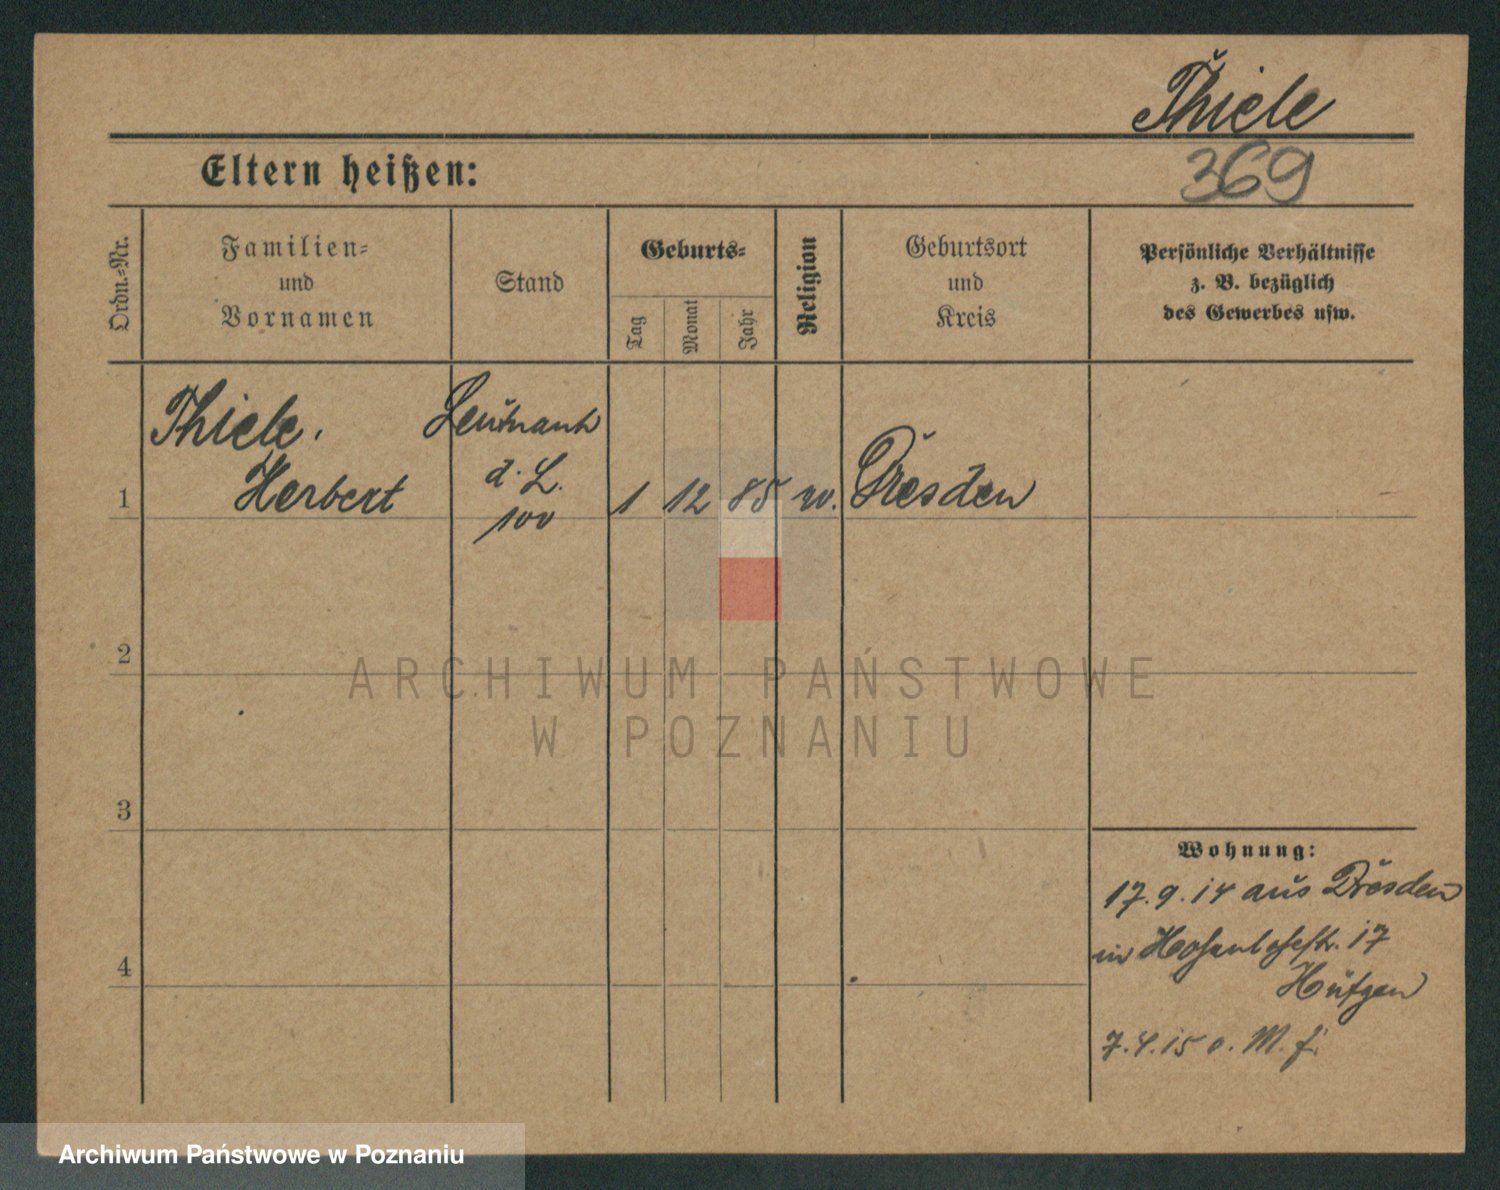 Thiele
Eltern heißen:
369
Ordn.-Nr.
Familien-
und
Vornamen
Stand
Geburts-
Tag
Monat
Jahr
Religion
Geburtsort
und
Kreis
Persönliche Verhältnisse
z. B. bezüglich
des Gewerbes usw.
Thiele,
Herbert
Leutnant
d. L.
100
1
1
12
85
Dresden
2
3
4
Wohnung:
17.9.14 aus Dresden
in Hohenlohestr. 17
7.4.15 o. M. f.
ARCHIWUM PAŃSTWOWE
W POZNANIU
Archiwum Państwowe w Poznaniu